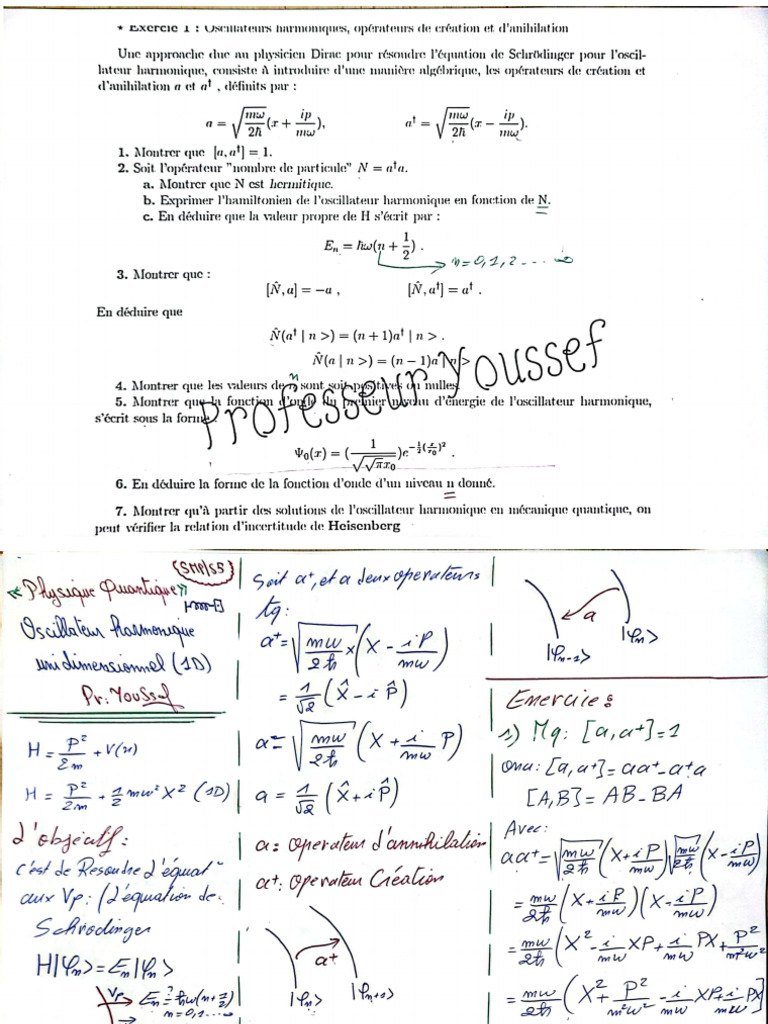 * Exercie 1 : Oscillateurs harmoniques, opérateurs de création et d'anihilation
Une approche due au physicien Dirac pour résoudre l'équation de Schrödinger pour l'oscil-
lateur harmonique, consiste à introduire d'une manière algébrique, les opérateurs de création et
d'anihilation a et a† , définits par :
a = √(mω/2ħ) (x + ip/mω),   a† = √(mω/2ħ) (x − ip/mω).
1. Montrer que [a, a†] = 1.
2. Soit l'opérateur "nombre de particule" N = a†a.
a. Montrer que N est hermitique.
b. Exprimer l'hamiltonien de l'oscillateur harmonique en fonction de N.
c. En déduire que la valeur propre de H s'écrit par :
Eₙ = ħω(n + 1/2) .
n=0,1,2---- ∞
3. Montrer que :
[N̂, a] = −a ,   [N̂, a†] = a† .
En déduire que
N̂(a† | n >) = (n + 1)a† | n > .
N̂(a | n >) = (n − 1)a | n >
Professeur Youssef
4. Montrer que les valeurs de n sont soit positives ou nulles.
5. Montrer que la fonction d'onde du premier niveau d'énergie de l'oscillateur harmonique,
s'écrit sous la forme
Ψ₀(x) = (1/√(√π x₀)) e^{−½(x/x₀)²} .
6. En déduire la forme de la fonction d'onde d'un niveau n donné.
7. Montrer qu'à partir des solutions de l'oscillateur harmonique en mécanique quantique, on
peut vérifier la relation d'incertitude de Heisenberg
(SMP/S5)
« Physique Quantique »
Oscillateur harmonique
unidimensionnel (1D)
Pr: Youssef
H = P²/2m + V(x)
H = P²/2m + 1/2 mω² X² (1D)
L'objectif:
c'est de Resoudre l'équat°
aux Vp: (l'équation de
Schrodinger
H|φₙ> = Eₙ|φₙ>
Vp Eₙ ?= ħω(n+1/2)
n=0,1----∞
Soit a⁺, et a deux operateurs
Tq:
a⁺ = √(mω/2ħ) × (X − iP/mω)
= 1/√2 (X̂ − i P̂)
a = √(mω/2ħ) (X + i/mω P)
a = 1/√2 (X̂ + i P̂)
a = Operateur d'annihilation
a⁺: Operateur Création
a⁺
|φₙ> |φₙ₊₁>
a
|φₙ₋₁> |φₙ>
Exercice:
1) Mq: [a,a⁺]=1
ona: [a,a⁺]= aa⁺ - a⁺a
[A,B]= AB - BA
Avec:
aa⁺ = √(mω/2ħ) (X + iP/mω) √(mω/2ħ) (X − iP/mω)
= mω/2ħ (X + iP/mω)(X − iP/mω)
= mω/2ħ (X² − i/mω XP + i/mω PX + P²/m²ω²
= mω/2ħ (X² + P²/m²ω² − i/mω XP + i/mω PX)